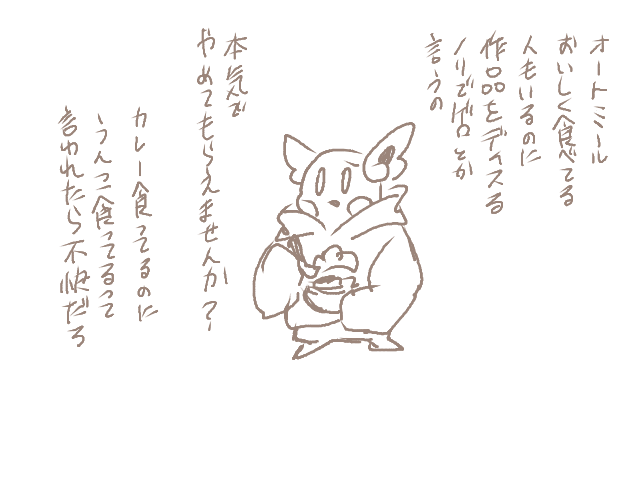 オートミール
おいしく食べてる
人もいるのに
作品をディスる
ノリでゲロとか
言うの
本気で
やめてもらえませんか？
カレー食ってるのに
うんこ食ってるって
言われたら不快だろ